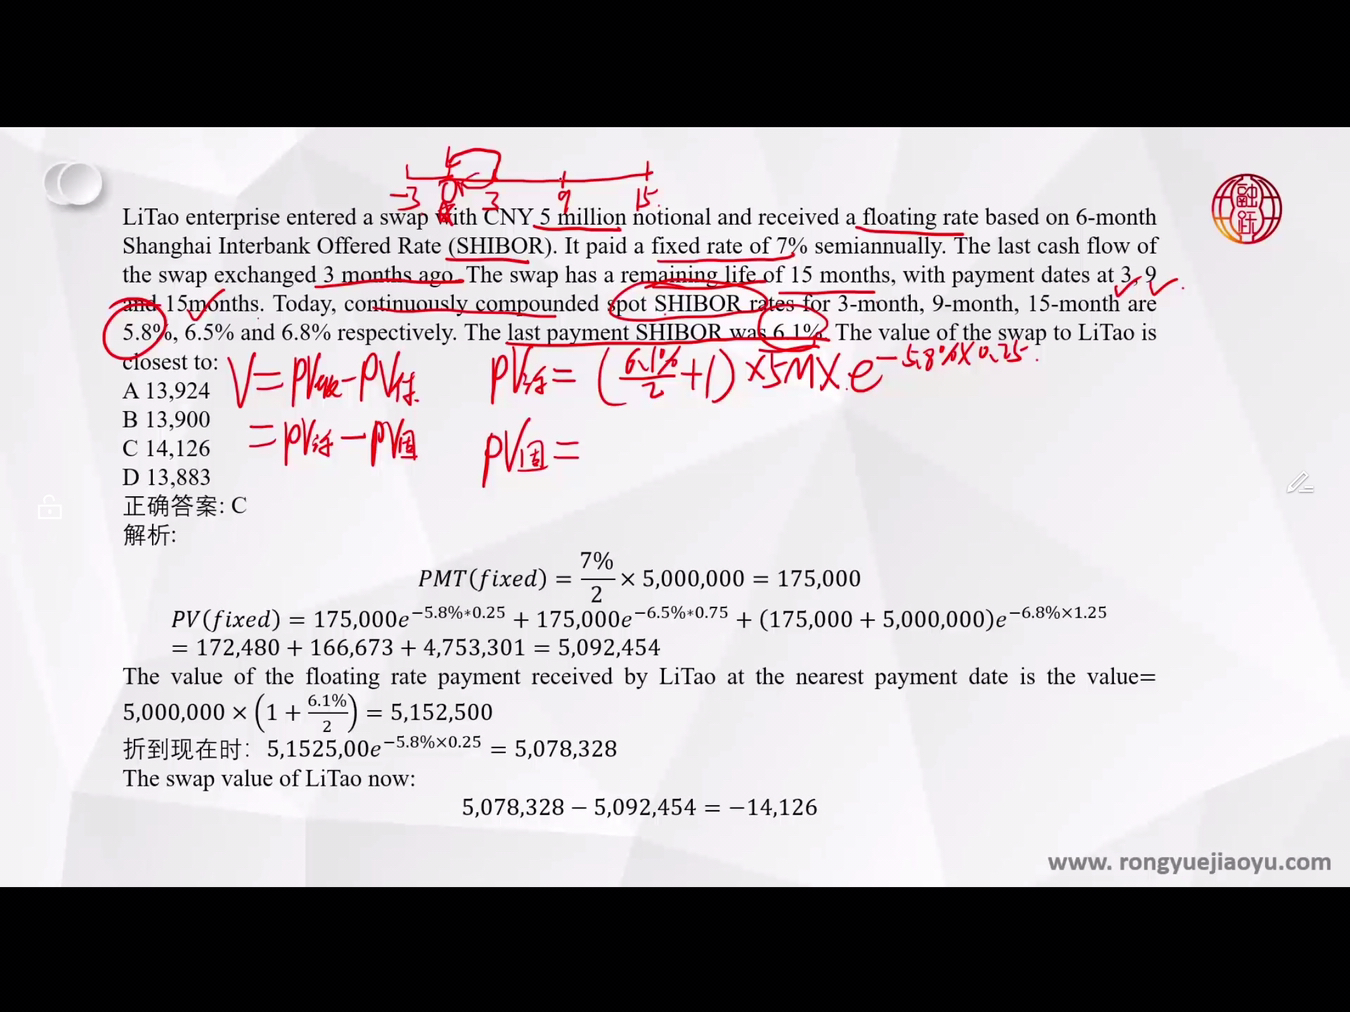 -3 0 3 9 15
LiTao enterprise entered a swap with CNY 5 million notional and received a floating rate based on 6-month
Shanghai Interbank Offered Rate (SHIBOR). It paid a fixed rate of 7% semiannually. The last cash flow of
the swap exchanged 3 months ago. The swap has a remaining life of 15 months, with payment dates at 3, 9
and 15months. Today, continuously compounded spot SHIBOR rates for 3-month, 9-month, 15-month are
5.8%, 6.5% and 6.8% respectively. The last payment SHIBOR was 6.1%. The value of the swap to LiTao is
closest to:
A 13,924
V = PV收 - PV付 PV浮 = (6.1%/2 + 1) × 5M × e^{-5.8%×0.25}
B 13,900
= PV浮 - PV固 PV固 =
C 14,126
D 13,883
正确答案: C
解析:
PMT(fixed) = 7%/2 × 5,000,000 = 175,000
PV(fixed) = 175,000e^{-5.8%*0.25} + 175,000e^{-6.5%*0.75} + (175,000 + 5,000,000)e^{-6.8%×1.25}
= 172,480 + 166,673 + 4,753,301 = 5,092,454
The value of the floating rate payment received by LiTao at the nearest payment date is the value=
5,000,000 × (1 + 6.1%/2) = 5,152,500
折到现在时: 5,1525,00e^{-5.8%×0.25} = 5,078,328
The swap value of LiTao now:
5,078,328 − 5,092,454 = −14,126
融跃
www. rongyuejiaoyu.com